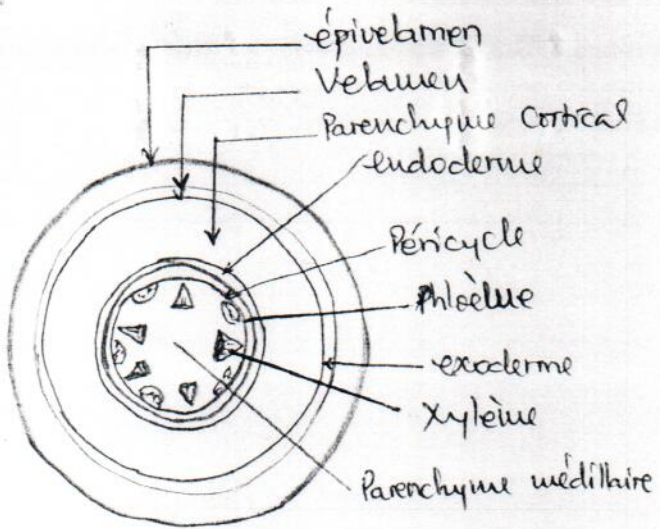 épivelamen
Velamen
Parenchyme Cortical
endoderme
Péricycle
Phloème
exoderme
Xylème
Parenchyme médillaire